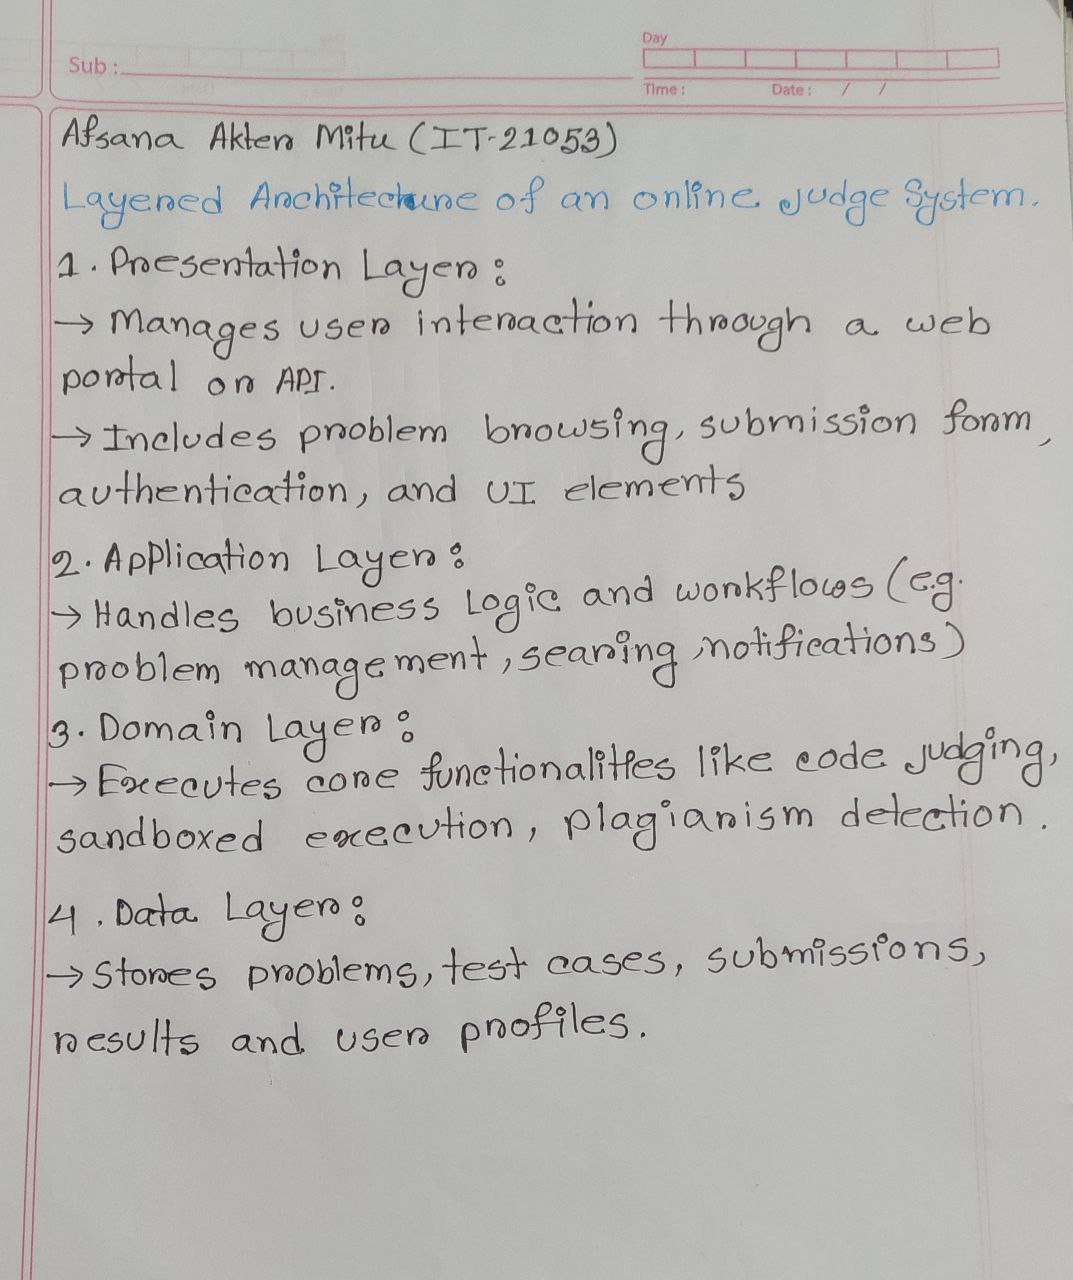 Sub :
Day
Time :
Date : / /
Afsana Akter Mitu (IT-21053)
Layered Architecture of an online judge System.
1. Presentation Layer :
→ Manages user interaction through a web
portal or API.
→ Includes problem browsing, submission form,
authentication, and UI elements
2. Application Layer :
→ Handles business Logic and workflows (e.g.
problem management, searing, notifications)
3. Domain Layer :
→ Executes core functionalities like code judging,
sandboxed execution, plagiarism detection.
4. Data Layer :
→ Stores problems, test cases, submissions,
results and user profiles.